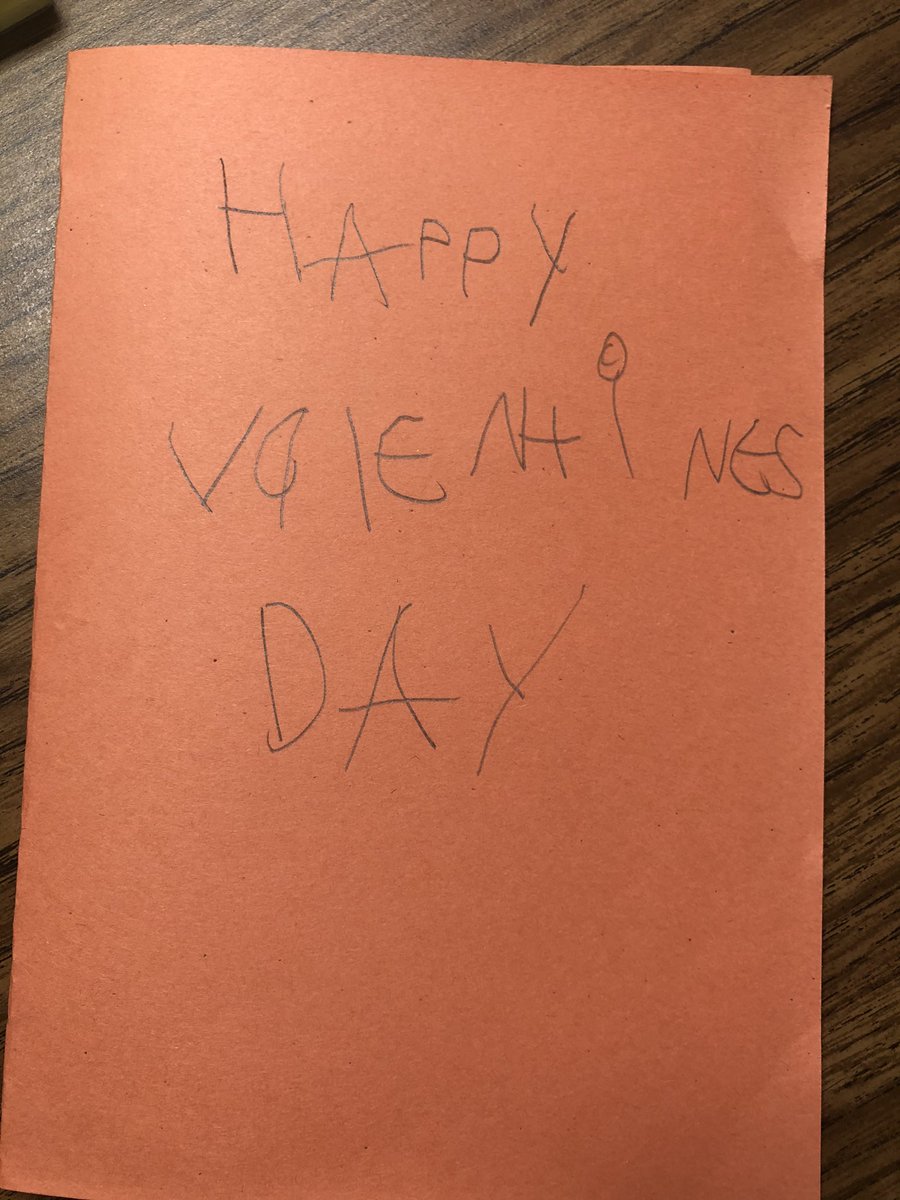 HAPPY
ValENtiNES
DAY